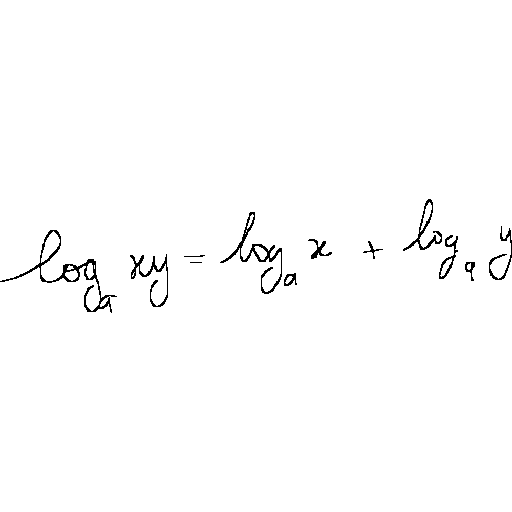 logₐ xy = logₐ x + logₐ y